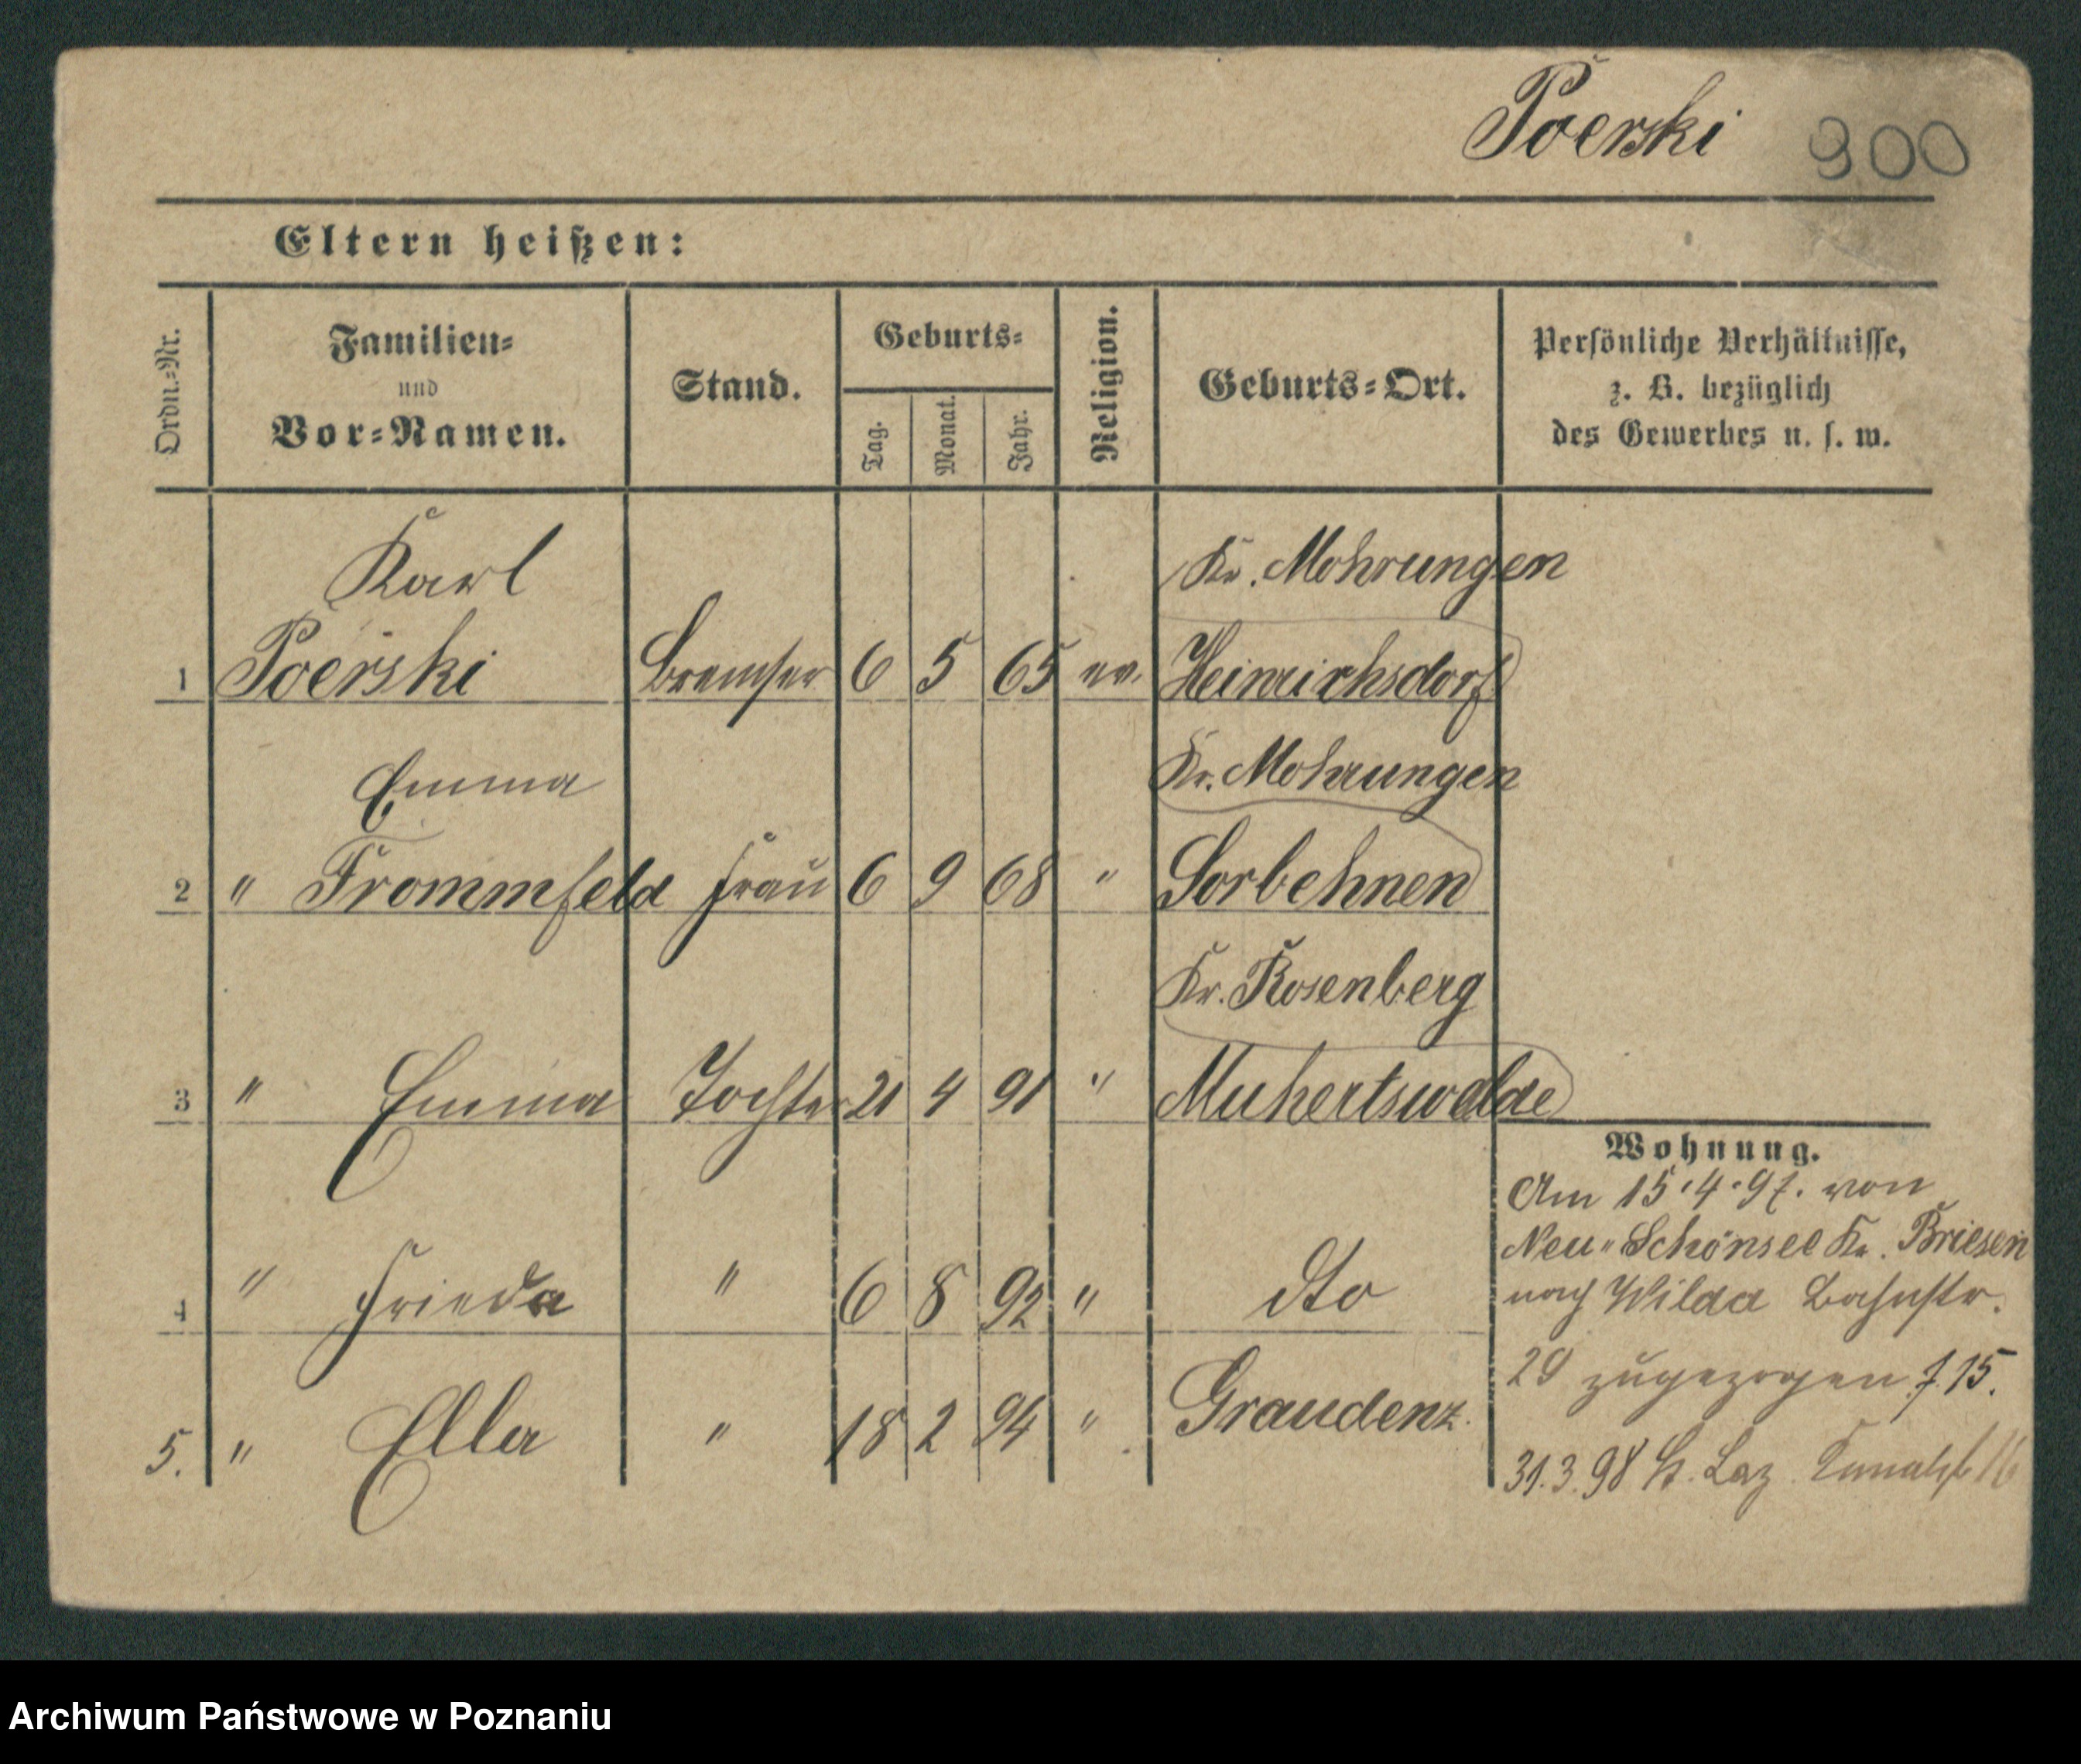 Poerski 900
Eltern heißen:
Ordn.-Nr.
Familien-
und
Vor-Namen.
Stand.
Geburts-
Tag.
Monat.
Jahr.
Religion.
Geburts-Ort.
Persönliche Verhältnisse,
z. B. bezüglich
des Gewerbes u. s. w.
Karl Kr. Mohrungen
1 Poerski Bremser 6 5 65 ev. Heinrichsdorf
Emma Kr. Mohrungen
2 " Frommfeld Frau 6 9 68 " Sorbehnen
Kr. Rosenberg
3 " Emma Tochter 21 4 91 "
4 " Frieda " 6 8 92 " dto
5. " Ella " 18 2 94 " Graudenz.
Wohnung.
Am 15.4.97. von
Neu-Schönsee Kr. Briesen
nach Wilda Bahnstr.
29 zugezogen f. 15.
31.3.98 St. Laz.
Archiwum Państwowe w Poznaniu